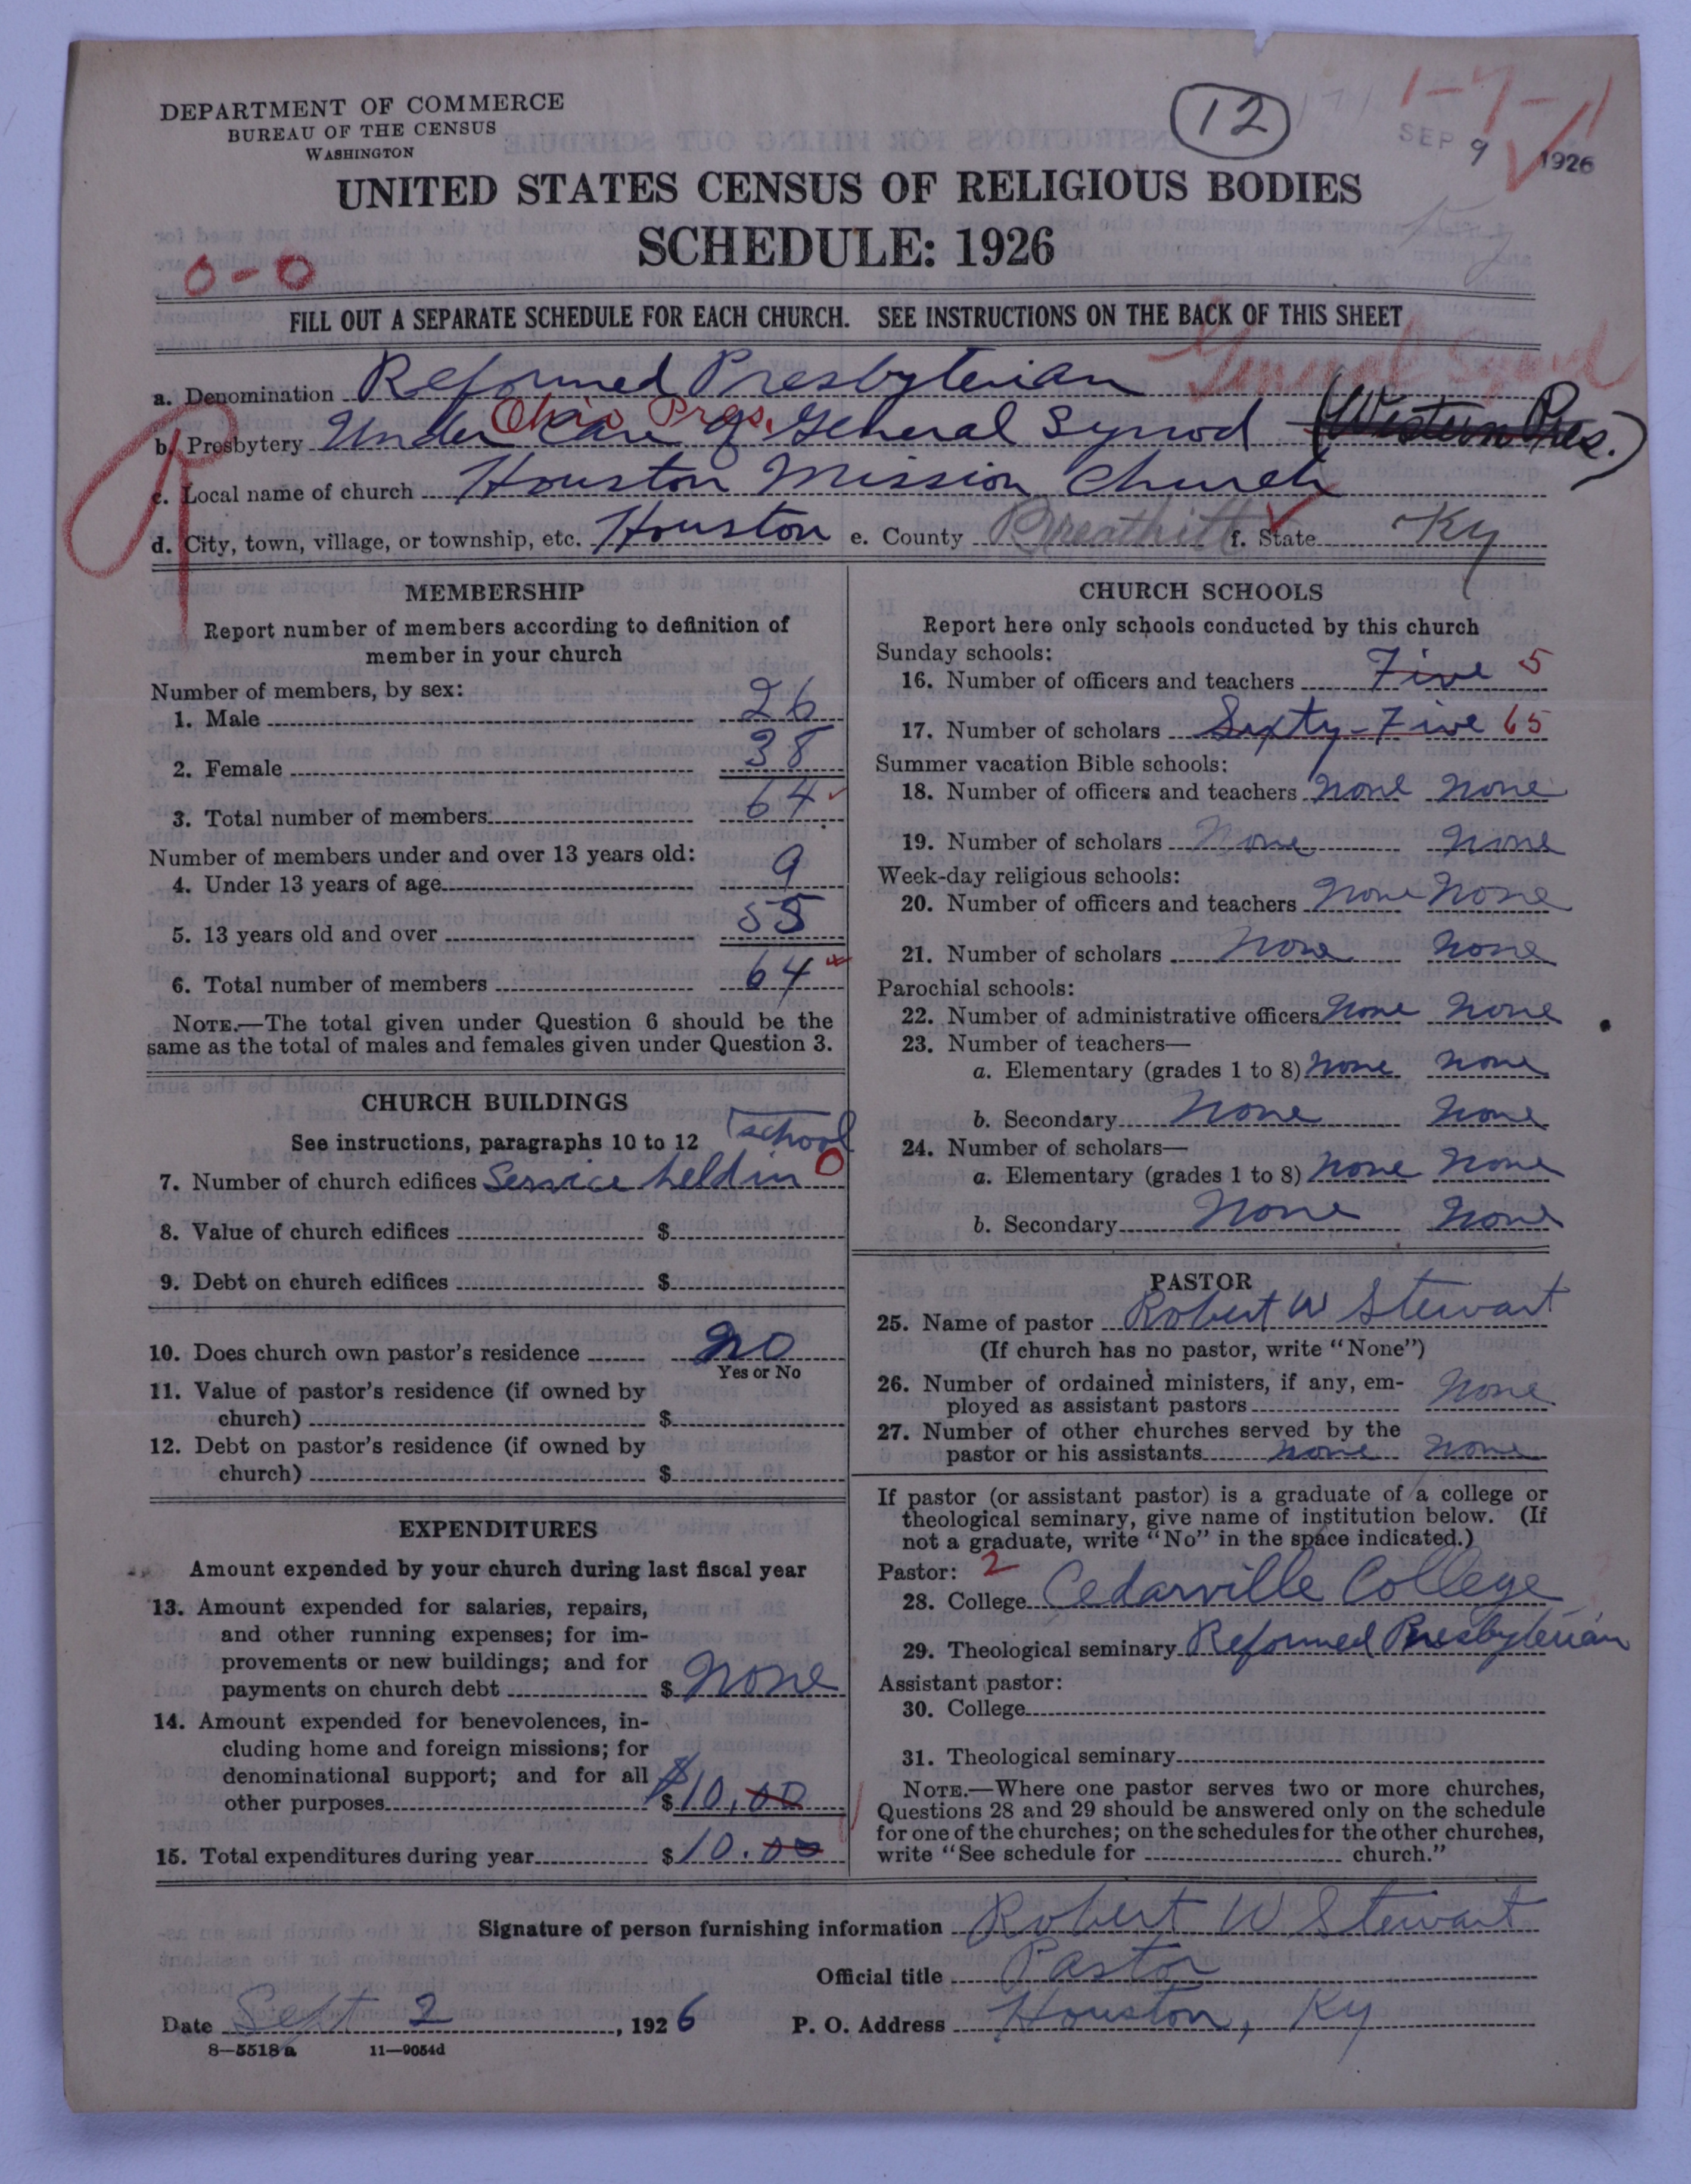 DEPARTMENT OF COMMERCE
BUREAU OF THE CENSUS
WASHINGTON
12
1-7-1
SEP 9 1926
UNITED STATES CENSUS OF RELIGIOUS BODIES
SCHEDULE: 1926
0-0
FILL OUT A SEPARATE SCHEDULE FOR EACH CHURCH. SEE INSTRUCTIONS ON THE BACK OF THIS SHEET
a. Denomination Reformed Presbyterian General Synod
Ohio Pres.
b. Presbytery Under care of General Synod (Western Pres.)
c. Local name of church Houston Mission Church
d. City, town, village, or township, etc. Houston e. County Breathitt f. State Ky
MEMBERSHIP
Report number of members according to definition of
member in your church
Number of members, by sex:
1. Male 26
2. Female 38
3. Total number of members 64
Number of members under and over 13 years old:
4. Under 13 years of age 9
5. 13 years old and over 55
6. Total number of members 64
NOTE.—The total given under Question 6 should be the
same as the total of males and females given under Question 3.
CHURCH BUILDINGS
See instructions, paragraphs 10 to 12 school
7. Number of church edifices Service held in 0
8. Value of church edifices $
9. Debt on church edifices $
10. Does church own pastor's residence no
Yes or No
11. Value of pastor's residence (if owned by
church) $
12. Debt on pastor's residence (if owned by
church) $
EXPENDITURES
Amount expended by your church during last fiscal year
13. Amount expended for salaries, repairs,
and other running expenses; for im-
provements or new buildings; and for
payments on church debt $ None
14. Amount expended for benevolences, in-
cluding home and foreign missions; for
denominational support; and for all
other purposes $ $10.00
15. Total expenditures during year $ 10.00
CHURCH SCHOOLS
Report here only schools conducted by this church
Sunday schools:
16. Number of officers and teachers Five 5
17. Number of scholars Sixty-Five 65
Summer vacation Bible schools:
18. Number of officers and teachers None None
19. Number of scholars None None
Week-day religious schools:
20. Number of officers and teachers None None
21. Number of scholars None None
Parochial schools:
22. Number of administrative officers None None
23. Number of teachers—
a. Elementary (grades 1 to 8) None None
b. Secondary None None
24. Number of scholars—
a. Elementary (grades 1 to 8) None None
b. Secondary None None
PASTOR
25. Name of pastor Robert W Stewart
(If church has no pastor, write "None")
26. Number of ordained ministers, if any, em-
ployed as assistant pastors None
27. Number of other churches served by the
pastor or his assistants None None
If pastor (or assistant pastor) is a graduate of a college or
theological seminary, give name of institution below. (If
not a graduate, write "No" in the space indicated.)
Pastor: 2
28. College Cedarville College
29. Theological seminary Reformed Presbyterian
Assistant pastor:
30. College
31. Theological seminary
NOTE.—Where one pastor serves two or more churches,
Questions 28 and 29 should be answered only on the schedule
for one of the churches; on the schedules for the other churches,
write "See schedule for church."
Signature of person furnishing information Robert W Stewart
Official title Pastor
Date Sept 2, 1926 P. O. Address Houston, Ky
8—5518a 11—9054d